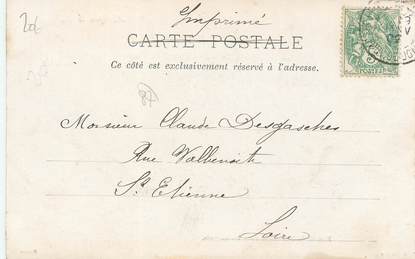 Imprimé
CARTE POSTALE
Ce côté est exclusivement réservé à l'adresse.
Monsieur Claude Desgasches
Rue Valbenoite
St Etienne
Loire